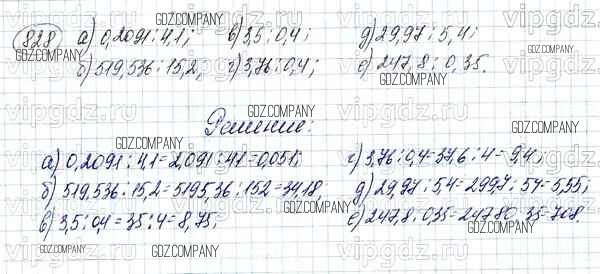 828 а) 0,2091 : 4,1; в) 3,5 : 0,4; д) 29,97 : 5,4;
б) 519,536 : 15,2; г) 3,76 : 0,4; е) 247,8 : 0,35.
Решение:
а) 0,2091 : 4,1 = 2,091 : 41 = 0,051;
б) 519,536 : 15,2 = 5195,36 : 152 = 34,18
в) 3,5 : 0,4 = 35 : 4 = 8,75;
г) 3,76 : 0,4 = 37,6 : 4 = 9,4;
д) 29,97 : 5,4 = 299,7 : 54 = 5,55;
е) 247,8 : 0,35 = 24780 : 35 = 708.
vipgdz.ru
GDZ.COMPANY